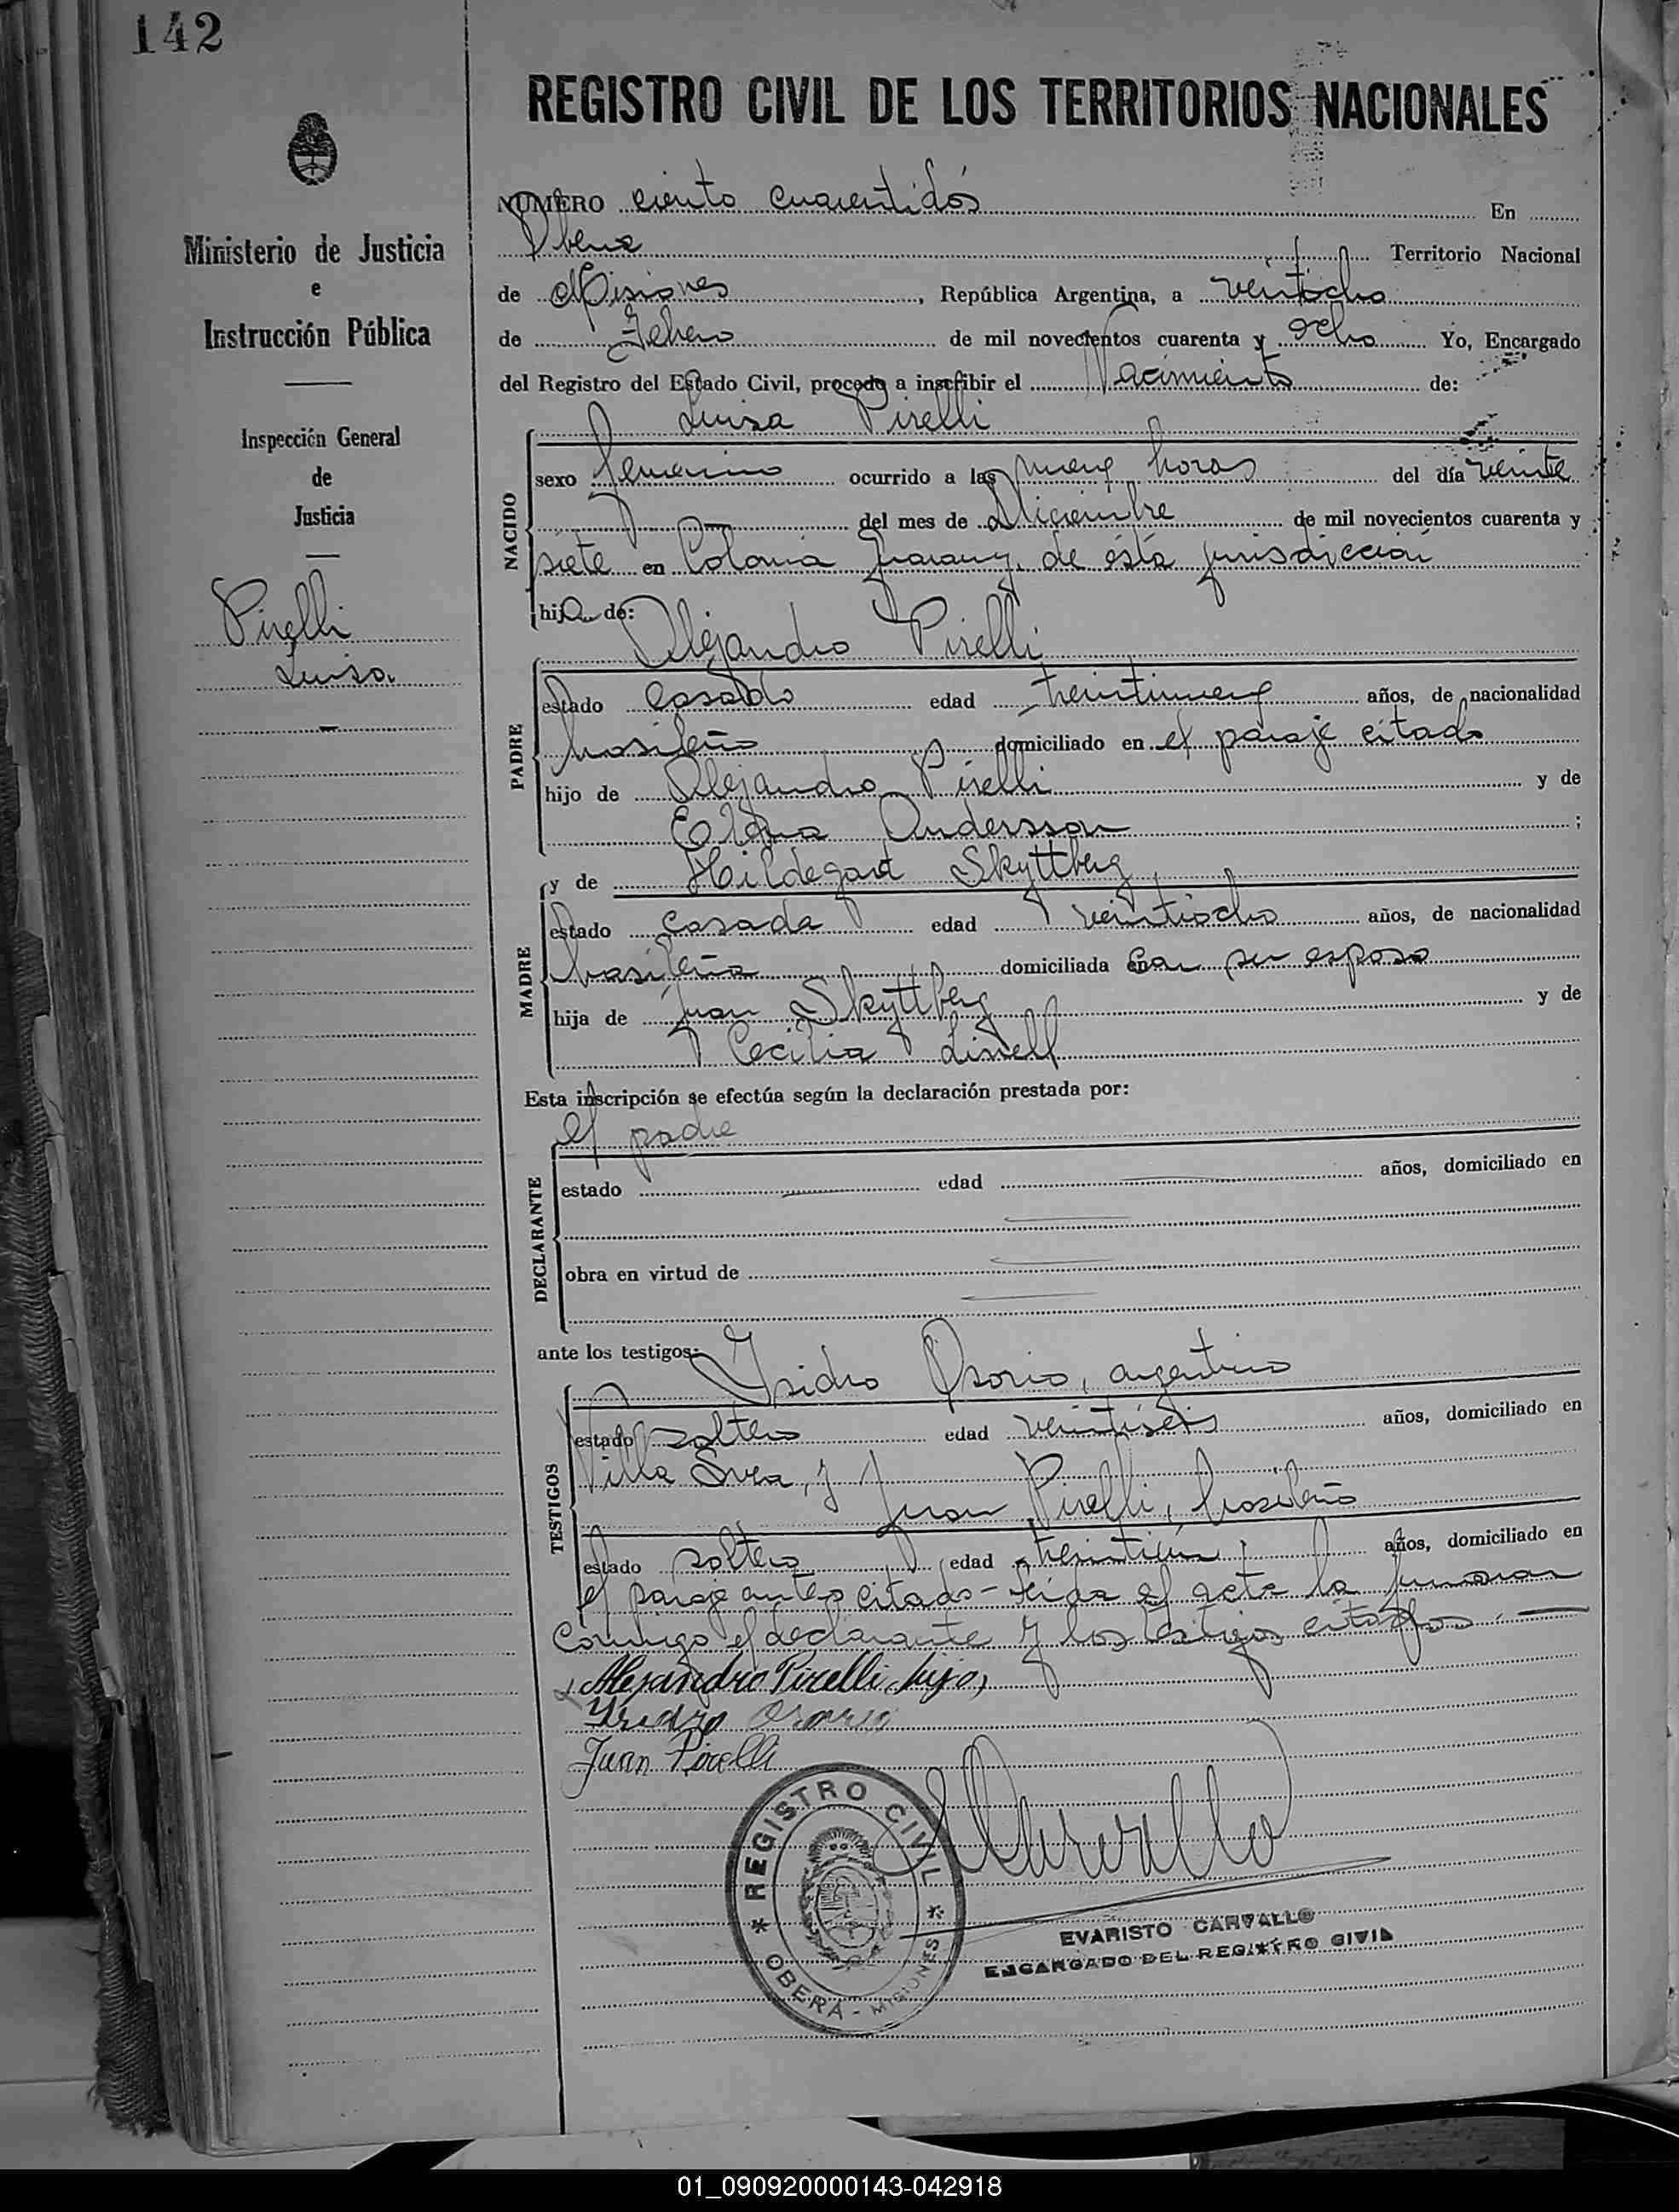 142
REGISTRO CIVIL DE LOS TERRITORIOS NACIONALES
Ministerio de Justicia
e
Instrucción Pública
Inspección General
de
Justicia
Pirelli
Luisa
NUMERO ciento cuarentidós En
Obera Territorio Nacional
de Misiones, República Argentina, a veintiocho
de Febrero de mil novecientos cuarenta y ocho Yo, Encargado
del Registro del Estado Civil, procedo a inscribir el Nacimiento de:
Luisa Pirelli
NACIDO
sexo femenino ocurrido a las nueve horas del día veinte
del mes de Diciembre de mil novecientos cuarenta y
siete en Colonia Guarany, de ésta jurisdicción
hija de:
Alejandro Pirelli
PADRE
estado casado edad treintinueve años, de nacionalidad
brasileño domiciliado en el paraje citado
hijo de Alejandro Pirelli y de
Andersson;
y de Hildegard Skyttberg
MADRE
estado casada edad veintiocho años, de nacionalidad
brasileña domiciliada en con su esposo
hija de Juan Skyttberg y de
Cecilia
Esta inscripción se efectúa según la declaración prestada por:
el padre
DECLARANTE
estado edad años, domiciliado en
obra en virtud de
ante los testigos:
Ysidro Osorio, argentino
TESTIGOS
estado soltero edad veintiséis años, domiciliado en
Villa Svea, y
Juan Pirelli, brasileño
estado soltero edad treintiún años, domiciliado en
el paraje antes citado - Leída el acta la firmaron
conmigo el declarante y los testigos citados. —
Alejandro Pirelli, hijo,
Ysidro Osorio
Juan Pirelli
REGISTRO CIVIL
OBERÁ - MISIONES
EVARISTO CARVALLO
ENCARGADO DEL REGISTRO CIVIL
01_090920000143-042918